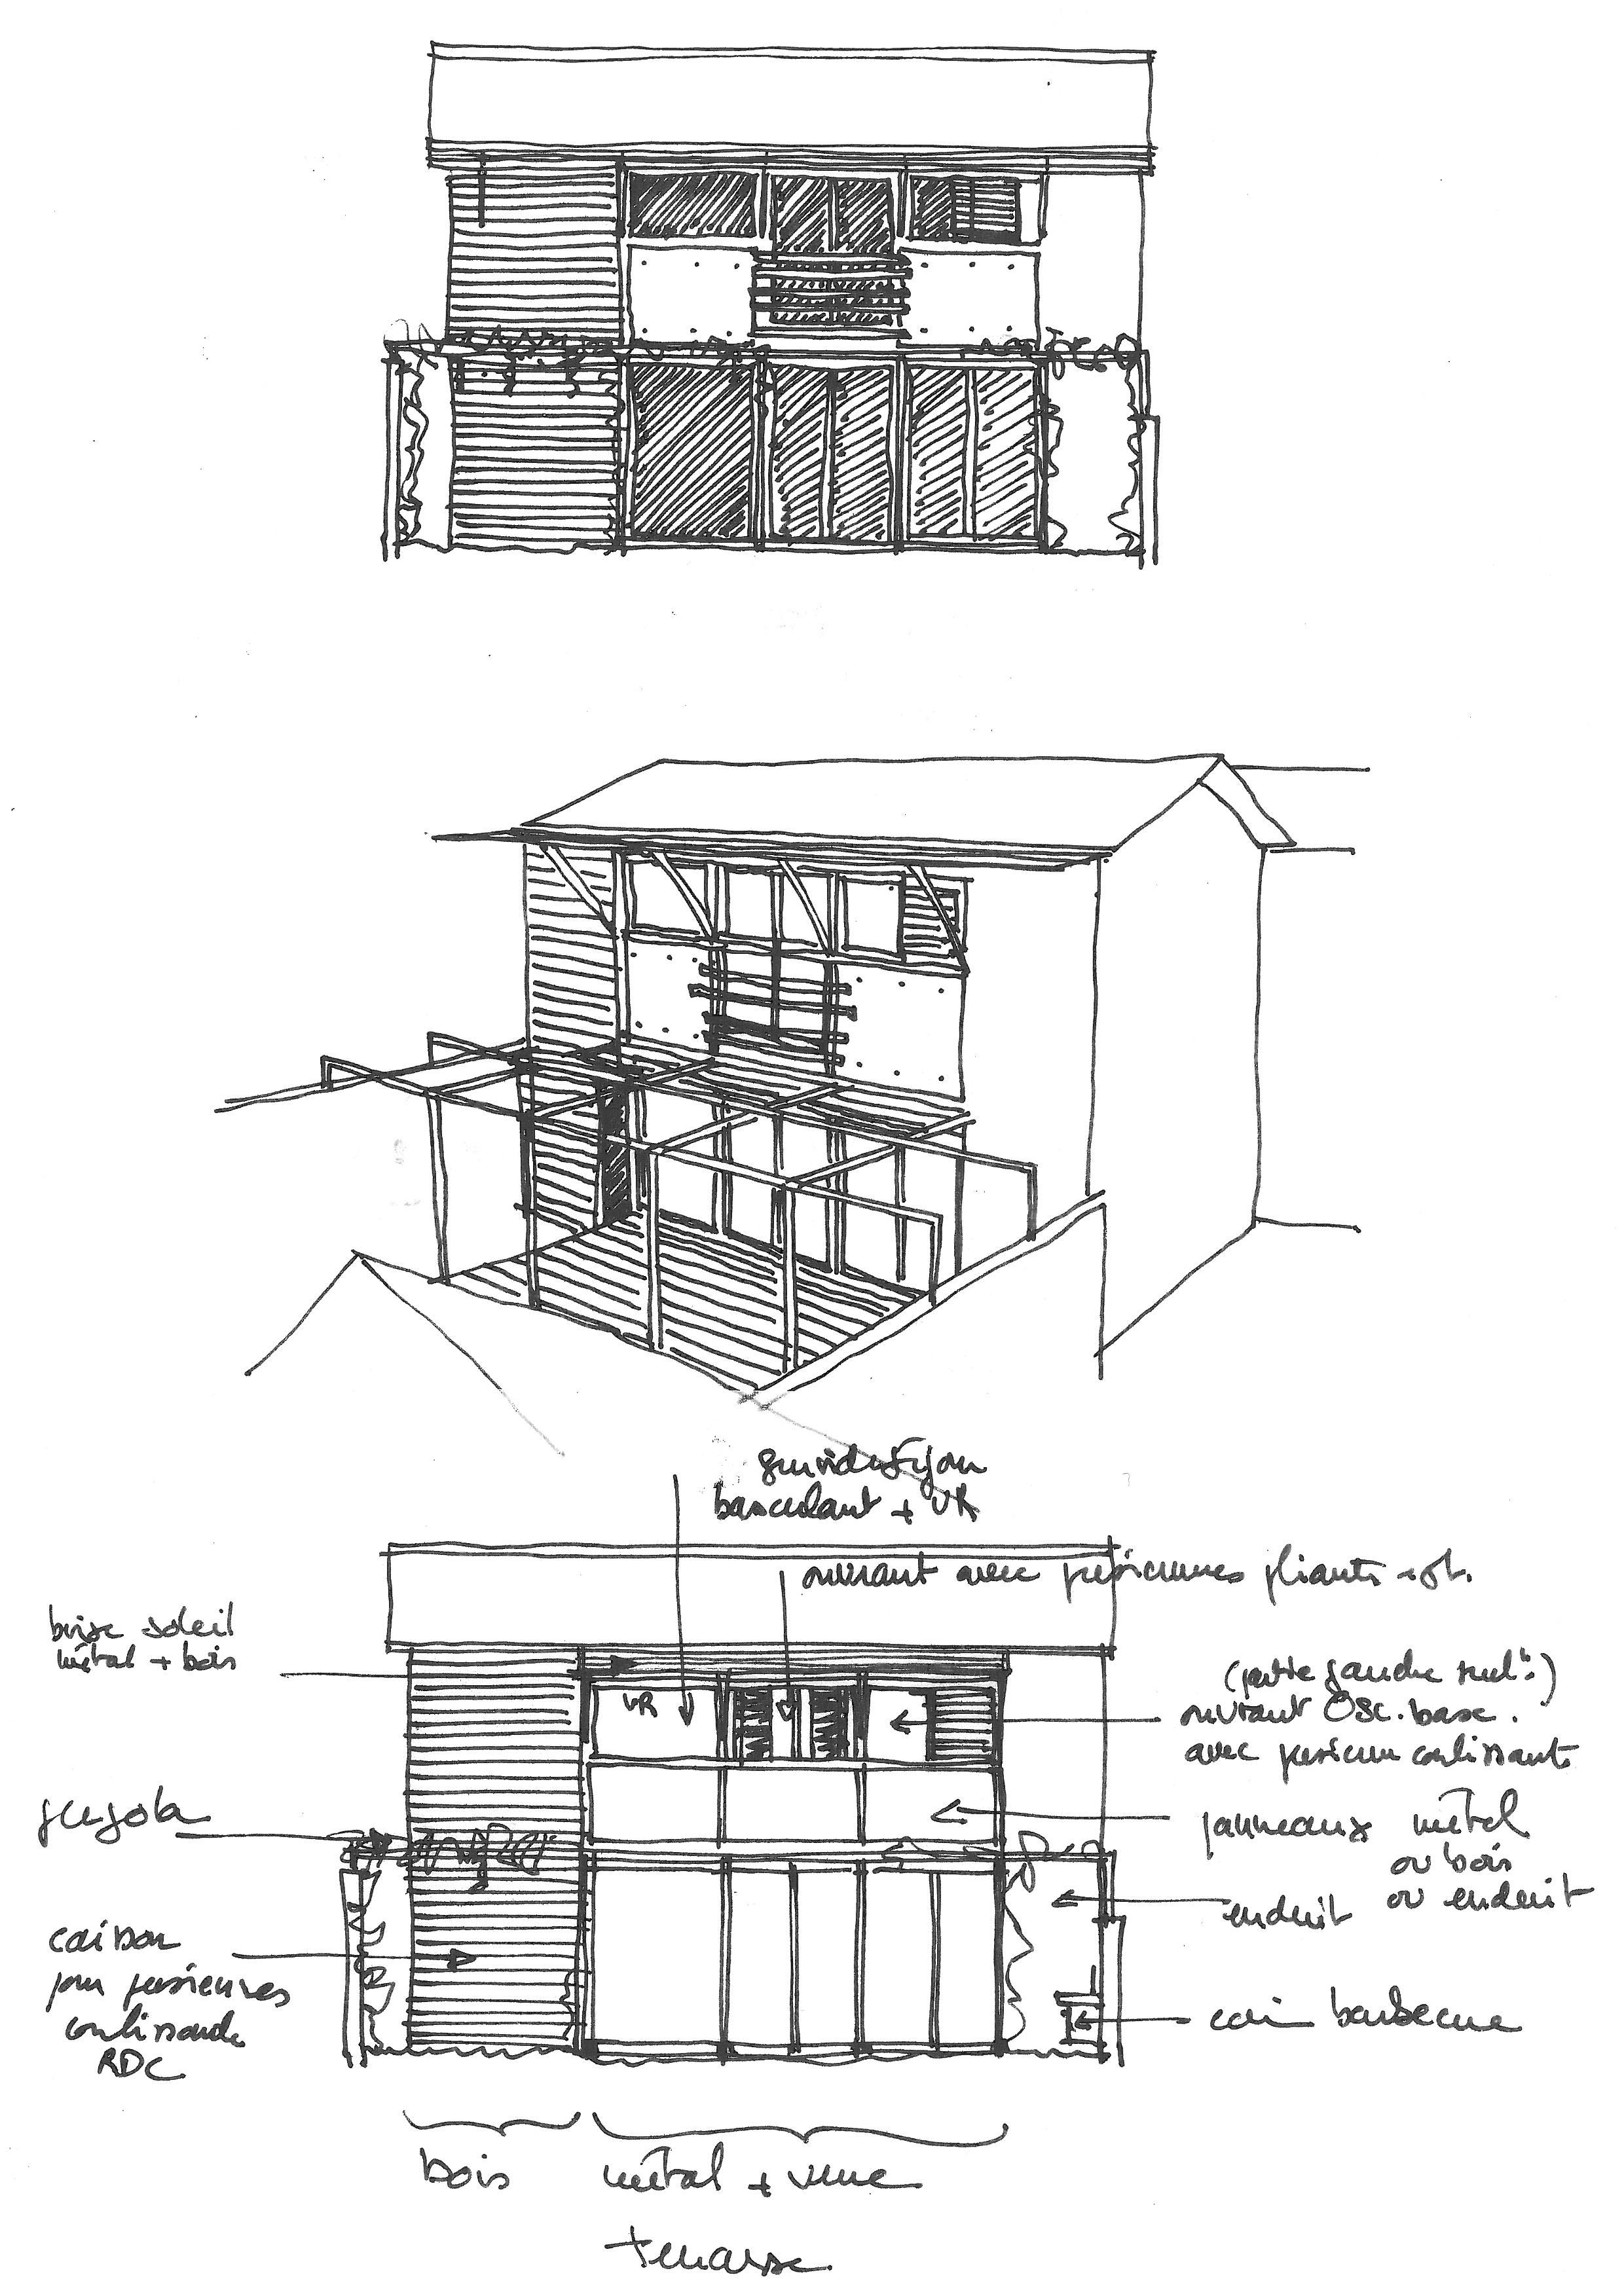 basculant + VR
ouvrant avec persiennes pliants
brise soleil
métal + bois
(partie gauche seult)
VR
ouvrant Osc. basc.
avec persienn coulissants
pergola
panneaux métal
ou bois
ou enduit
enduit
caisson
pour persiennes
coulissande
RDC
coin barbecue
bois métal + verre
terrasse